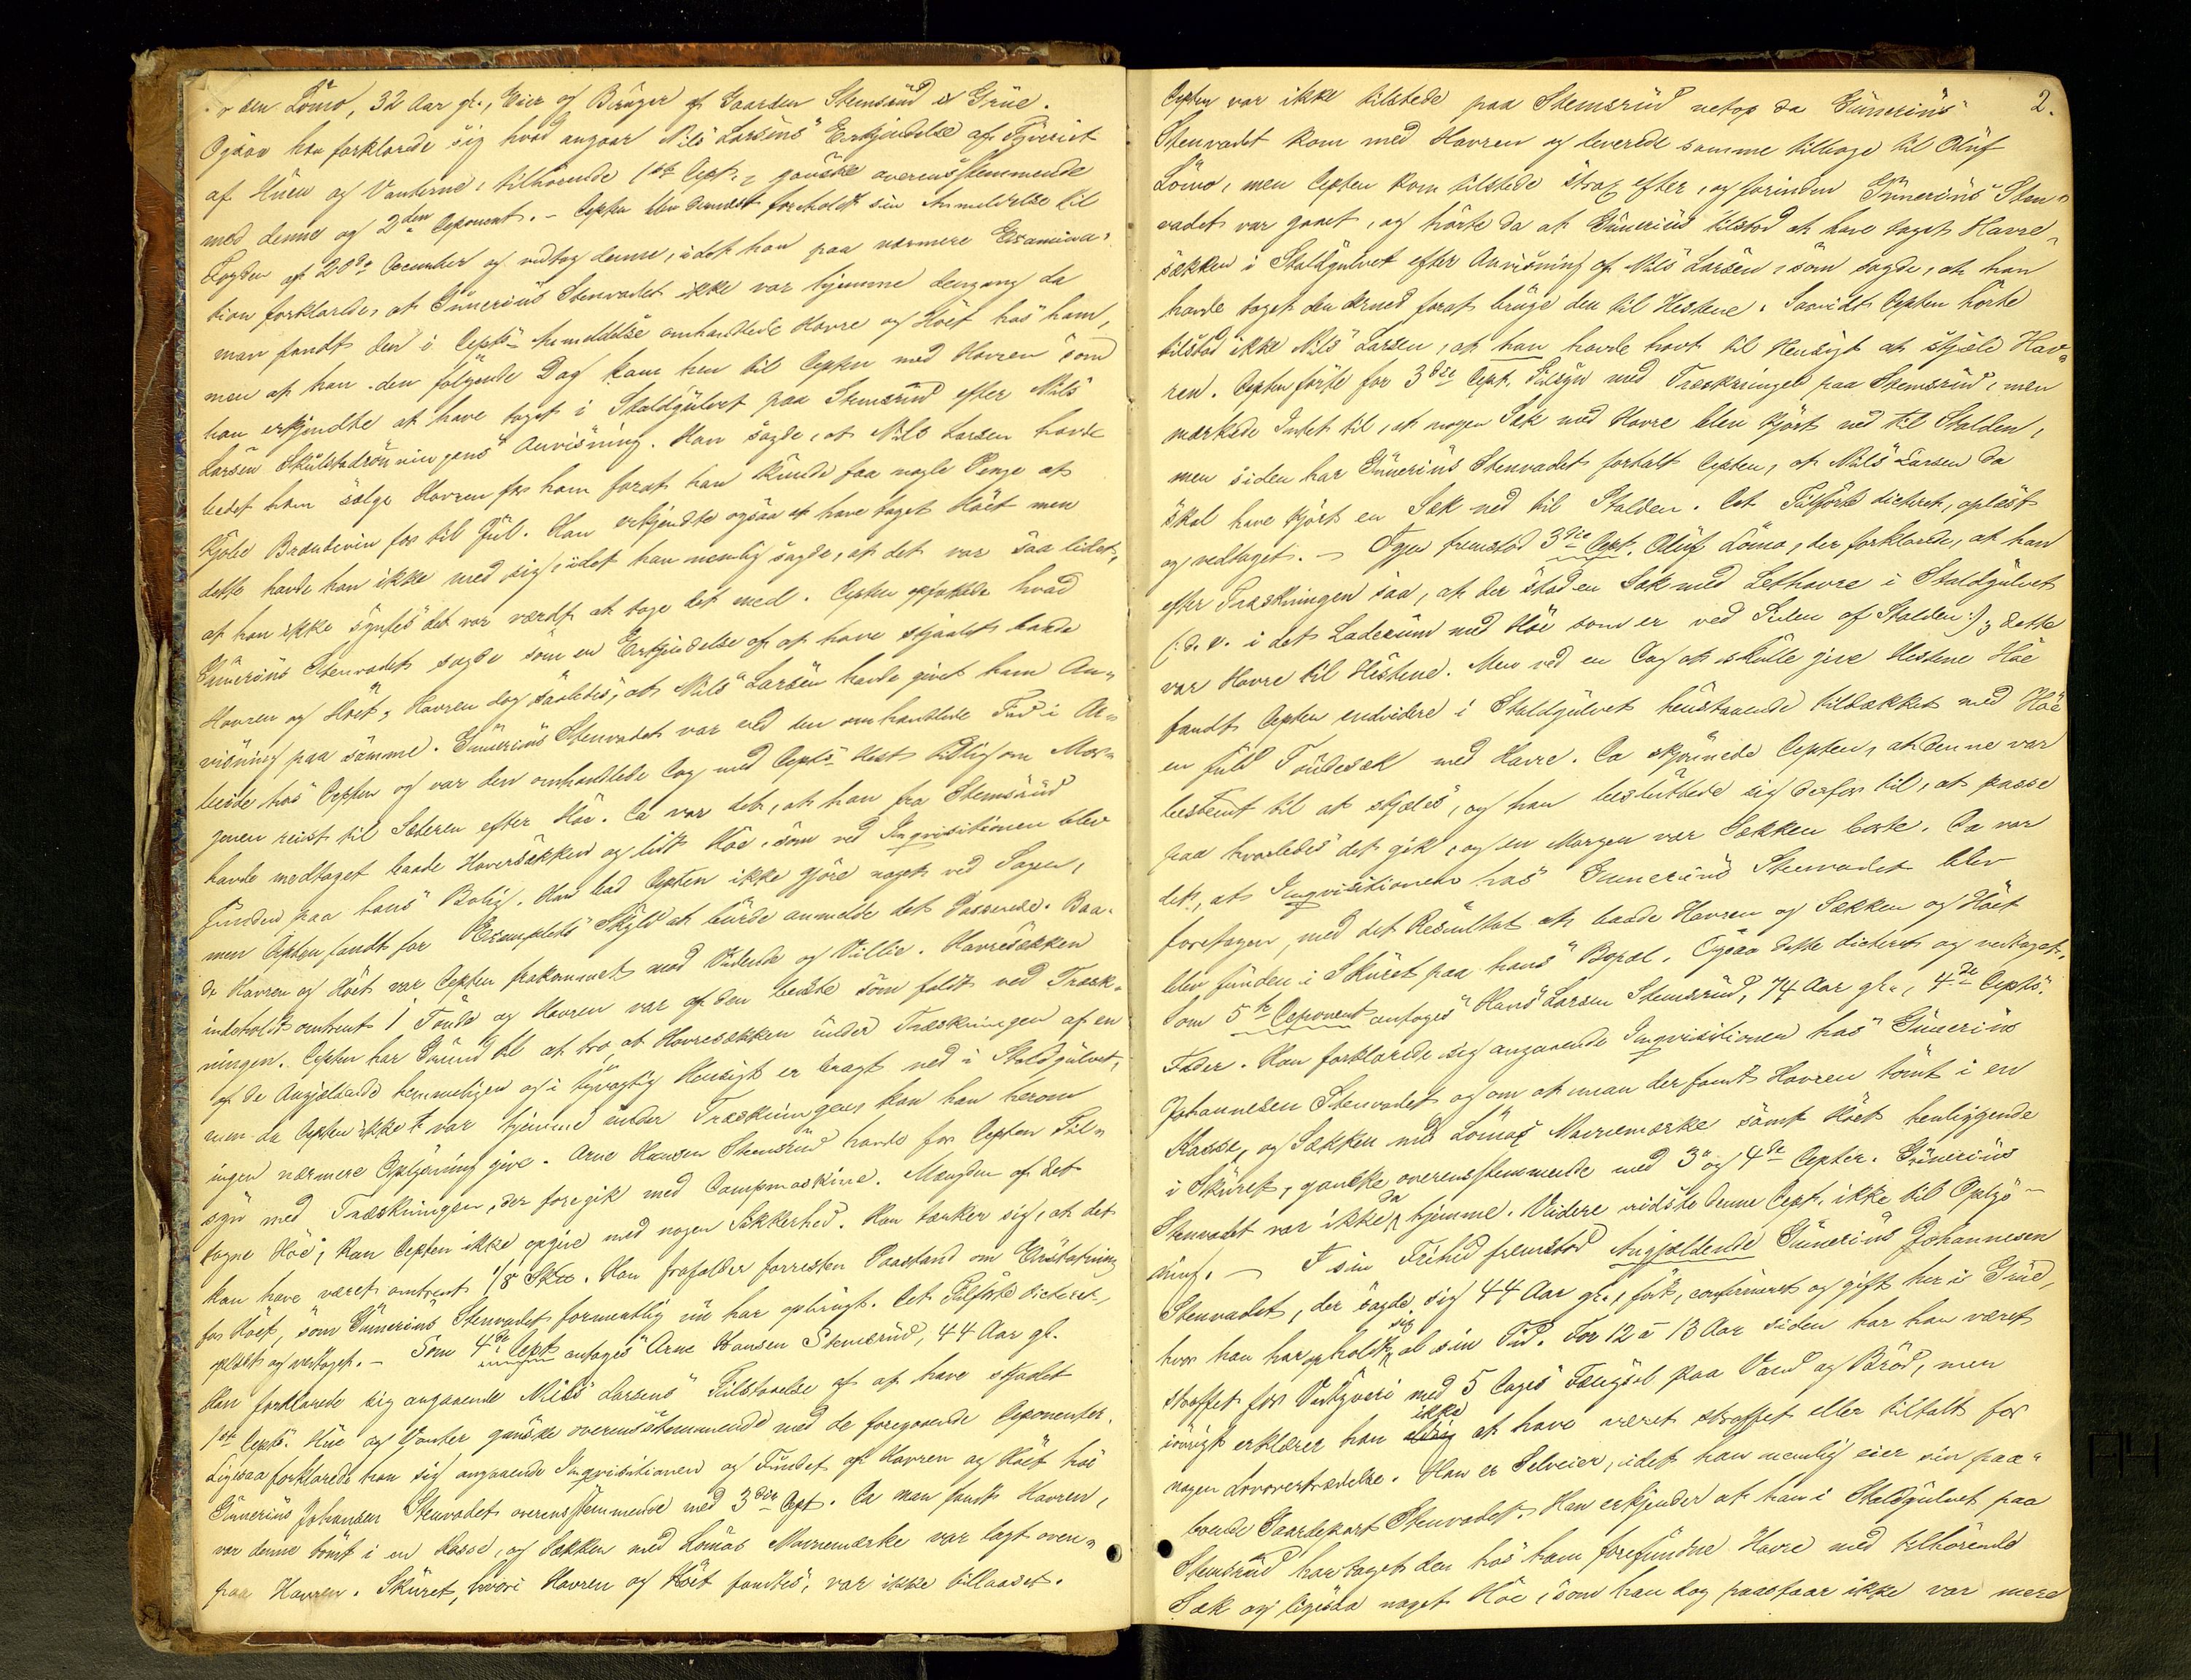 sen Lömo, 32 Aar gl., Eier og Bruger af Gaarden Stemsrud i Grue.
Ogsaa han forklarede sig hvad angaar Nils Larsens Erkjendelse af Tyveriet
af Huen og Vanterne, tilhørende 1ste Dept., ganske overensstemmende
med denne og 2den Deponent. – Depten blev dernæst foreholdt sin Anmeldelse til
Fogden af 20de December og vedtog denne, idet han paa nærmere Examina-
tion forklarede, at Gunerius Stenvadet ikke var hjemme dengang da
man fandt den i Depts Anmeldelse omhandlede Havre og Höet hos ham,
men at han den fölgende Dag kom hen til Depten med Havren som
han erkjendte at have taget i Staldgulvet paa Stemsrud efter Nils
Larsen Skulstadrönningens Anvisning. Han sagde, at Nils Larsen havde
bedet ham sælge Havren for ham forat han kunde faa nogle Penge at
kjöbe Brændeviin for til Jul. Han erkjendte ogsaa at have taget Höet men
dette havde han ikke med sig, idet han nemlig sagde, at det var saa lidet,
at han ikke syntes det var værdt at tage det med. Depten opfattede hvad
Gunerius Stenvadet sagde som en Erkjendelse af at have stjaalet baade
Havren og Höet, Havren dog saaledes, at Nils Larsen havde givet ham An-
visning paa samme. Gunerius Stenvadet var ved den omhandlede Tid i Ar-
beide hos Depten og var den omhandlede Dag med Depts Hest tidlig om Mor-
genen reist til Sæteren efter Höe. Da var det, at han fra Stemsrud
havde medtaget baade Havresækken og lidt Höe, som ved Inqvisitionen blev
funden paa hans Bolig. Han bad Depten ikke gjöre noget ved Sagen,
men Depten fandt for Exemplets Skyld at burde anmelde det Passerede. Baa-
de Havren og Höet var Depten frakommet mod Vidende og Villie. Havresækken
indeholdt omtrent 1 Tönde og Havren var af den bedste som faldt ved Træsk-
ningen. Depten har Grund til at tro at Havresækken under Træskningen af en
af de Angjældende hemmeligen og i tyvagtig Hensigt er bragt ned i Staldgulvet,
men da Depten ikke var hjemme under Træskningen kan han herom
ingen nærmere Oplysning give. Arne Hansen Stemsrud havde for Depten Til-
syn med Træskningen, der foregik med Dampmaskine. Mængden af det
tagne Höe, kan Depten ikke opgive med nogen Sikkerhed. Han tænker sig, at det
kan have været omtrent 1/8 Sk℔. Han frafalder forresten Paastand om Erstatning
for Höet, som Gunerius Stenvadet formentlig nu har opbrugt. Det Tilförte dicteret,
oplæst og vedtaget. – Som 4de Dept antoges Arne Hansen Stemsrud, 44 Aar gl.
Han forklarede sig angaaende Nils Larsens Tilstaaelse af at have stjaalet
1ste Depts Hue og Vanter ganske overensstemmende med de foregaaende Deponenter.
Ligesaa forklarede han sig angaaende Inqvisitionen og Fundet af Havren og Höet hos
Gunerius Johansen Stenvadet overensstemmende med 3die Dept. Da man fandt Havren,
var denne tömt i en Kasse, og Sækken med Lömos Mærke var lagt oven-
paa Havren. Skuret, hvori Havren og Höet fandtes, var ikke tillaaset.
2.
Depten var ikke tilstede paa Stemsrud netop da Gunerius
Stenvadet kom med Havren og leverede samme tilbage til Oluf
Lömo, men Depten kom tilstede strax efter, og forinden Gunerius Sten-
vadet var gaaet, og hörte da at Gunerius tilstod at have taget Havre-
sækken i Staldgulvet efter Anvisning af Nils Larsen, som sagde, at han
havde taget den derned forat bruge den til Hestene. Saavidt Depten hörte
tilstod ikke Nils Larsen, at han havde havt til Hensigt at stjæle Hav-
ren. Depten förte for 3die Dept. Tilsyn med Træskningen paa Stemsrud, men
mærkede Intet til, at nogen Sæk med Havre blev kjört ned til Stalden,
men siden har Gunerius Stenvadet fortalt Depten, at Nils Larsen da
skal have kjört en Sæk ned til Stalden. Det Tilförte dicteret, oplæst
og vedtaget. – Igjen fremstod 3die Dept. Oluf Lömo, der forklarede, at han
efter Træskningen saa, at der stod en Sæk med Lethavre i Staldgulvet
(: d. v. i det Laderum med Höe som er ved Siden af Stalden :), dette
var Havre til Hestene. Men ved en Dag at skulle give Hestene Höe
fandt Depten endvidere i Staldgulvet henstaaende tildækket med Höe
en fuld Töndesæk med Havre. Da skjönnede Depten, at denne var
bestemt til at stjæles, og han besluttede sig derfor til, at passe
paa hvorledes det gik, og en Morgen var Sækken borte. Da var
det, at Inqvisitionen hos Gunerius Stenvadet blev
foretagen, med det Resultat at baade Havren og Sækken og Höet
blev funden i Skuret paa hans Bopæl. Ogsaa dette dicteret og vedtaget.
Som 5te Deponent antoges Hans Larsen Stemsrud, 74 Aar gl., 4de Depts
Fader. Han forklarede sig angaaende Inqvisitionen hos Gunerius
Johannesen Stenvadet og om at man der fandt Havren tömt i en
Kasse, og Sækken med Lömos Mærke samt Höet henliggende
i Skuret, ganske overensstemmende med 3die og 4de Depter. Gunerius
Stenvadet var ikke da hjemme. Videre vidste denne Dept. ikke til Oplys-
ning. – I sin Frihed fremstod Angjældende Gunerius Johannesen
Stenvadet, der sagde sig 44 Aar gl., födt, confirmeret og gift her i Grue,
hvor han har opholdt sig al sin Tid. For 12 à 13 Aar siden har han været
straffet for Vedtyveri med 5 Dages Fængsel paa Vand og Bröd, men
iövrigt erklærer han ikke at have været straffet eller tiltalt for
nogen Lovovertrædelse. Han er Selveier, idet han nemlig eier sin paa-
boende Gaardepart Stenvadet. Han erkjender at han i Staldgulvet paa
Stemsrud har taget den hos ham forefundne Havre med tilhörende
Sæk og ligesaa noget Höe, som han dog paastaar ikke var mere